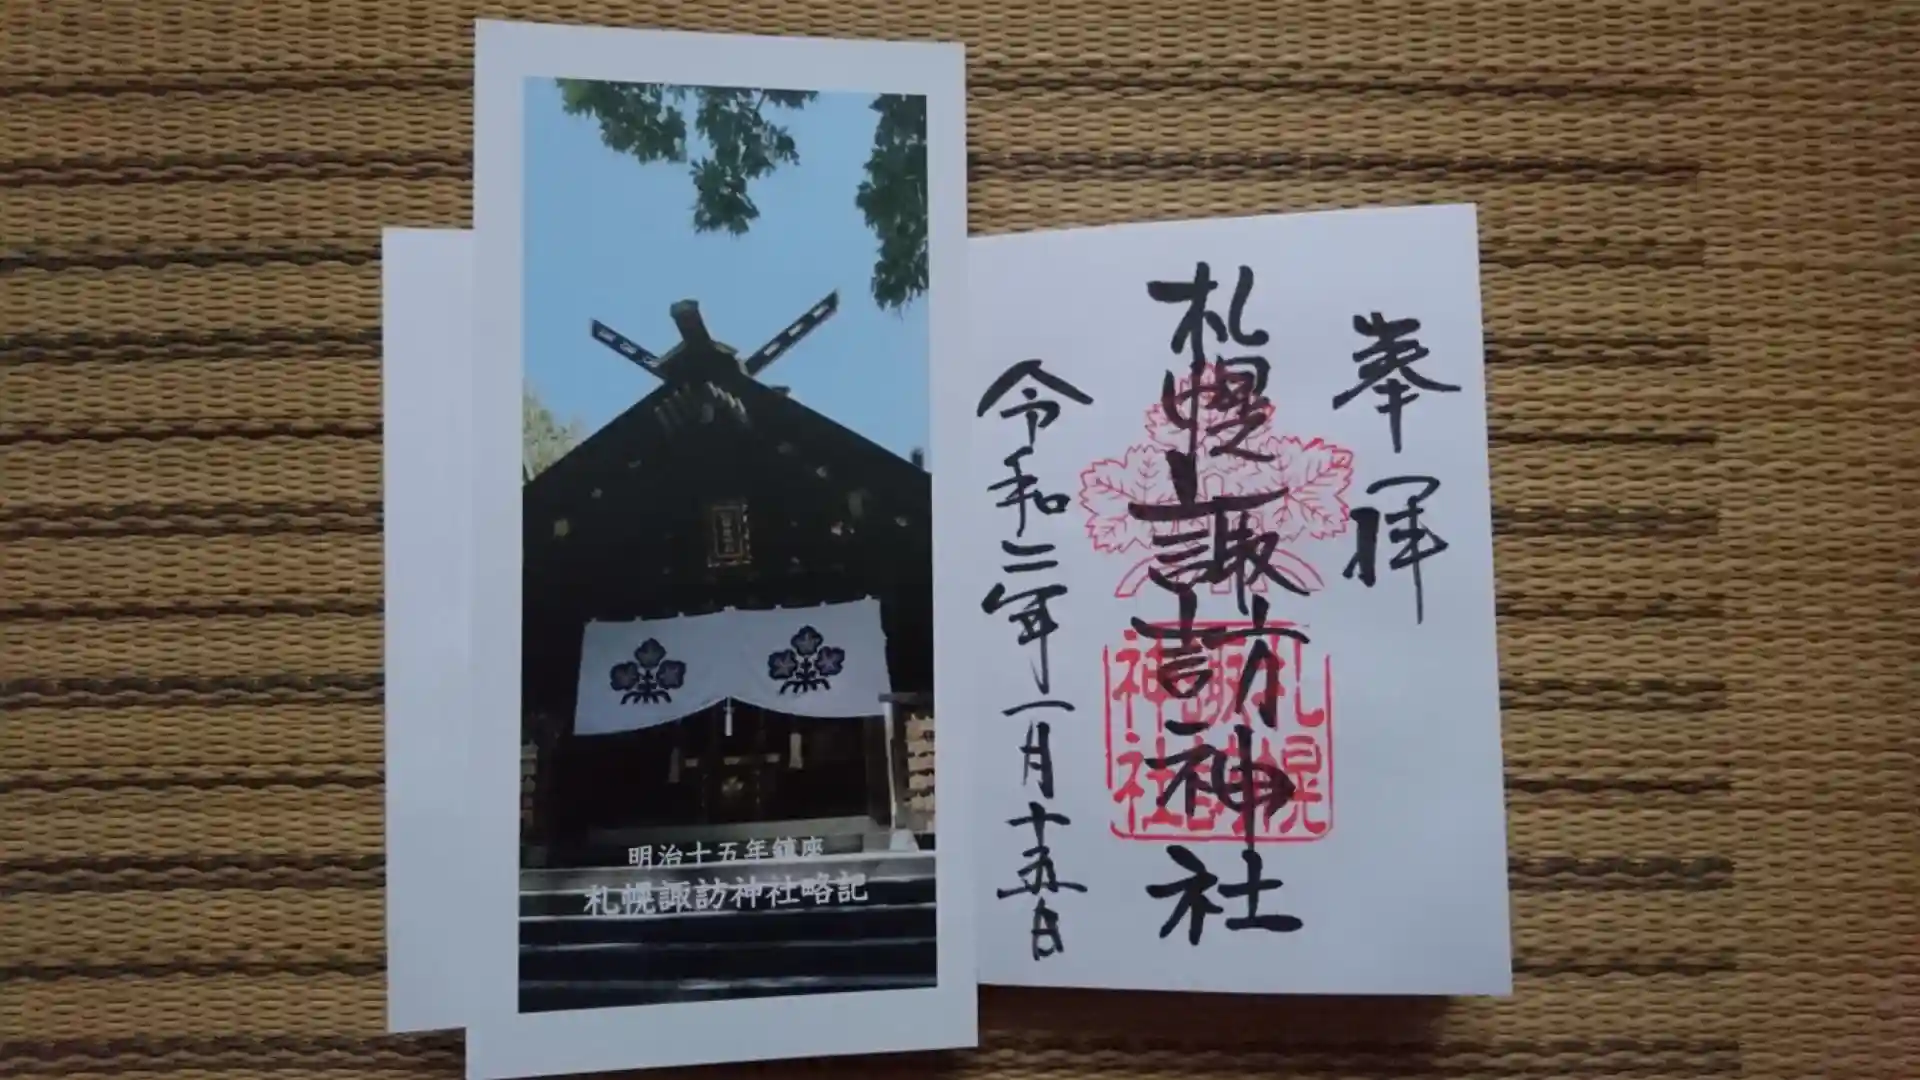 明治十五年鎮座
札幌諏訪神社略記
奉拝
札幌諏訪神社
令和二年一月十五日
札幌
諏訪
神社